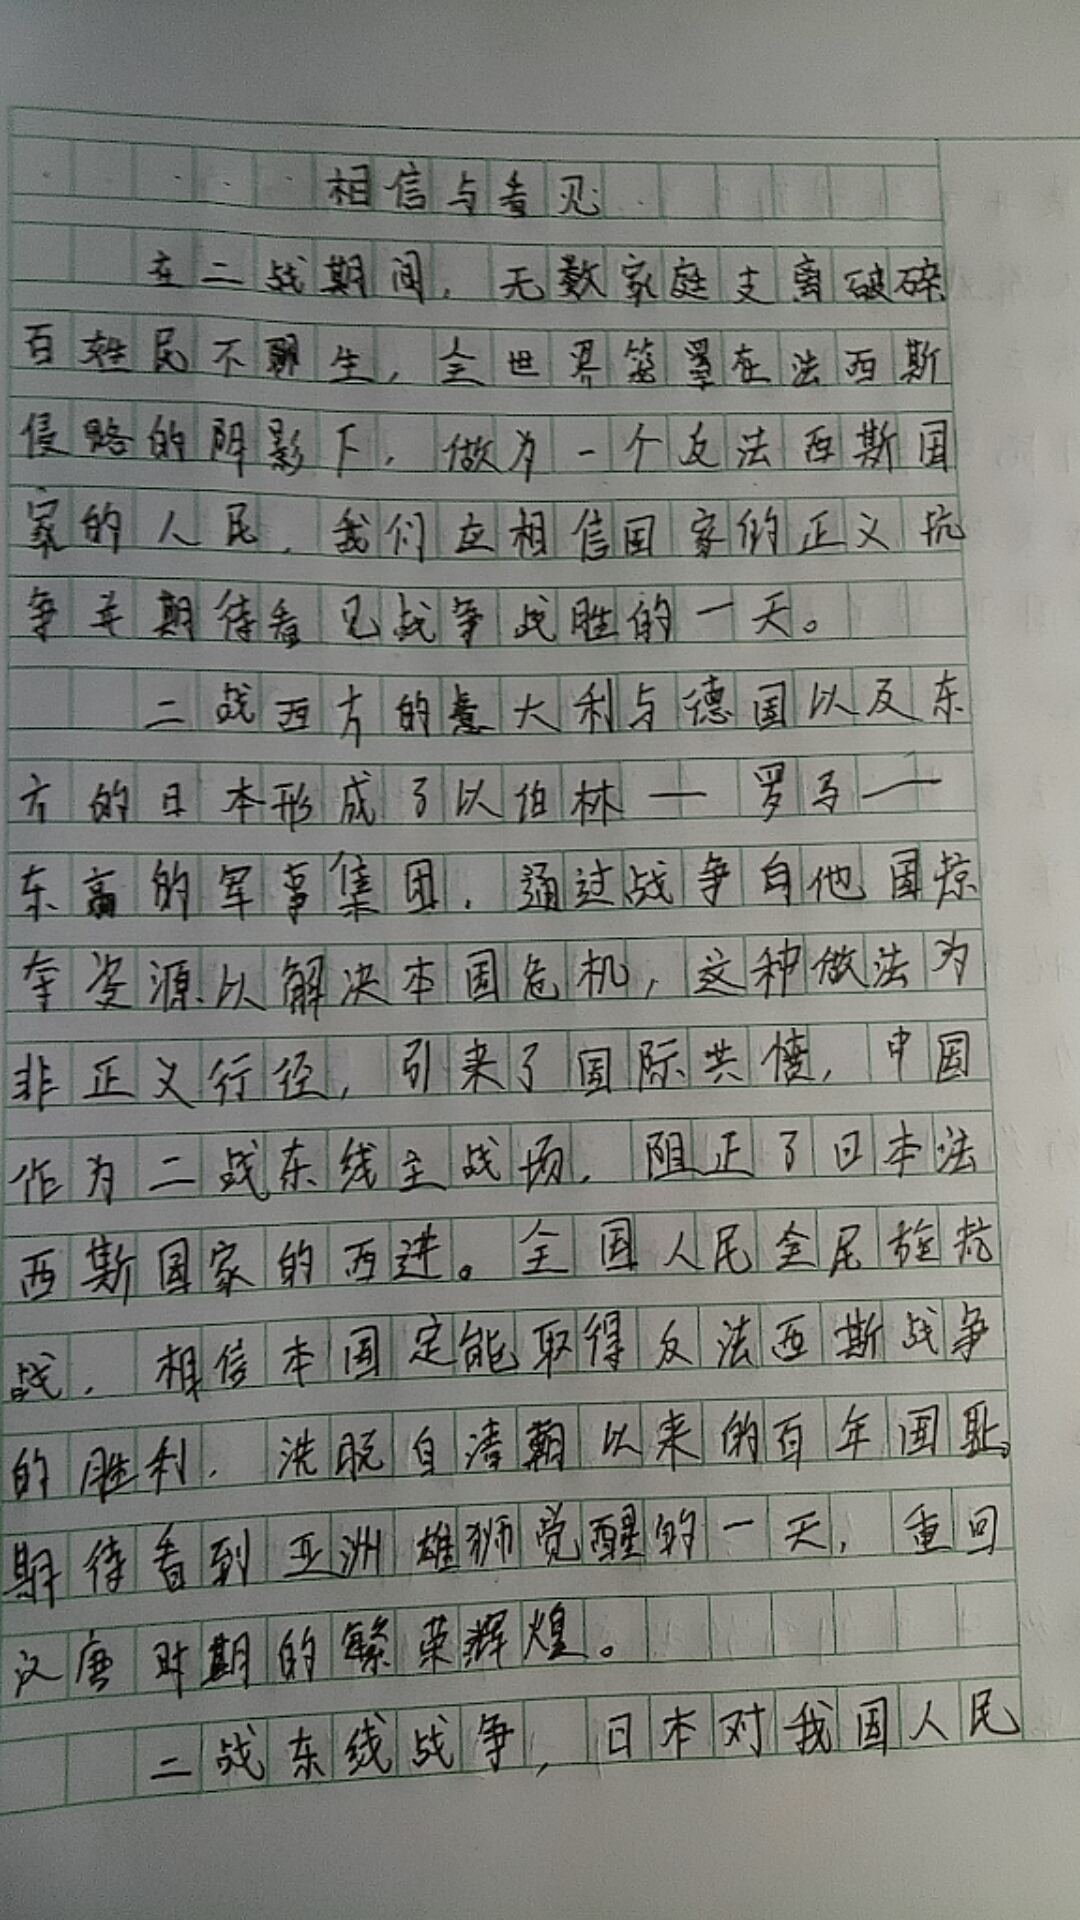 相信与看见
在二战期间，无数家庭支离破碎
百姓民不聊生，全世界笼罩在法西斯
侵略的阴影下，做为一个反法西斯国
家的人民，我们应相信国家的正义抗
争并期待看见战争战胜的一天。
二战西方的意大利与德国以及东
方的日本形成了以伯林—罗马—
东高的军事集团，通过战争自他国惊
夺资源以解决本国危机，这种做法为
非正义行径，引来了国际共愤，中国
作为二战东线主战场，阻止了日本法
西斯国家的西进。全国人民全民族抗
战，相信本国定能取得反法西斯战争
的胜利，洗脱自清朝以来的百年国耻。
期待看到亚洲雄狮觉醒的一天，重回
汉唐时期的繁荣辉煌。
二战东线战争，日本对我国人民